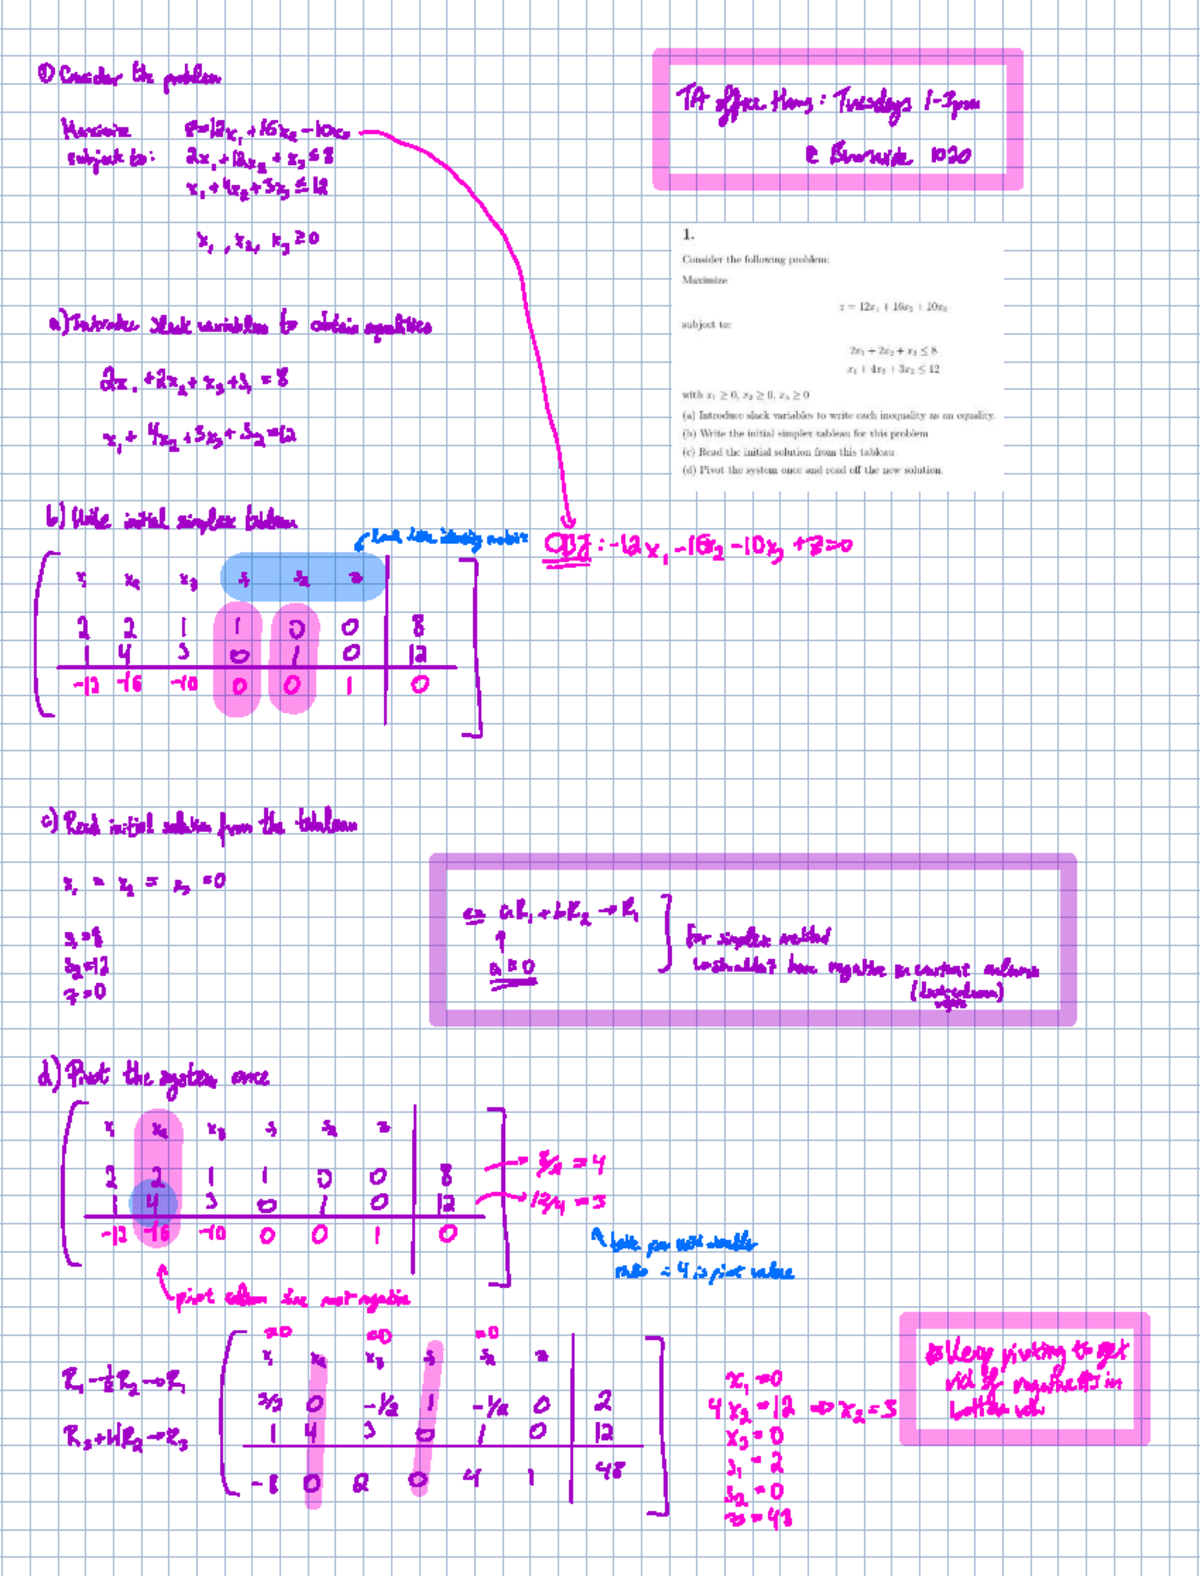 ① Consider the problem
Maximize z=12x₁+16x₂-10x₃
subject to: 2x₁+12x₂+x₃≤8
x₁+4x₂+3x₃≤12
x₁, x₂, x₃≥0
TA office Hours: Tuesdays 1-3pm
@ Burnside 1020
1.
Consider the following problem:
Maximize
z = 12x₁ + 16x₂ + 10x₃
subject to:
2x₁ + 2x₂ + x₃ ≤ 8
x₁ + 4x₂ + 3x₃ ≤ 12
with x₁ ≥ 0, x₂ ≥ 0, x₃ ≥ 0
(a) Introduce slack variables to write each inequality as an equality.
(b) Write the initial simplex tableau for this problem
(c) Read the initial solution from this tableau
(d) Pivot the system once and read off the new solution.
a) Introduce slack variables to obtain equalities
2x₁+2x₂+x₃+s₁=8
x₁+4x₂+3x₃+s₂=12
b) Write initial simplex tableau
Look like identity matrix
OBJ: -12x₁-16x₂-10x₃+z=0
x₁ x₂ x₃ s₁ s₂ z
2 2 1 1 0 0 8
1 4 3 0 1 0 12
-12 -16 -10 0 0 1 0
c) Read initial solution from the tableau
x₁ = x₂ = x₃ = 0
s₁=8
s₂=12
z=0
aR₁+bR₂→R₁
for simplex method
shouldn't have negative in constant column
d) Pivot the system once
x₁ x₂ x₃ s₁ s₂ z
2 2 1 1 0 0 8 → 8/2 = 4
1 4 3 0 1 0 12 → 12/4 = 3
-12 -16 -10 0 0 1 0
ratio ∴ 4 is pivot value
pivot column has most negative
=0 =0 =0
x₁ x₂ x₃ s₁ s₂ z
R₁-½R₂→R₁
3/2 0 -1/2 1 -1/2 0 2
R₃+4R₂→R₃
1 4 3 0 1 0 12
-8 0 2 0 4 1 48
x₁=0
4x₂=12 ⇒ x₂=3
x₃=0
s₁=2
s₂=0
z=48
Keep pivoting to get
rid of negatives in
bottom row